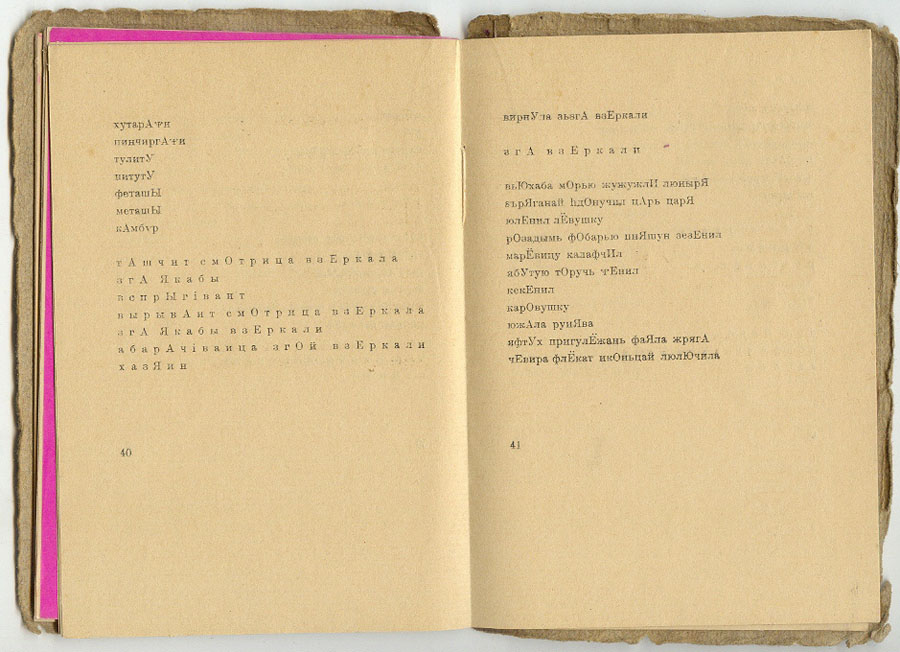 тулитУ
питутУ
феташЫ
меташЫ
кАмбур
т А ш ч и т с м О т р и ц а в з Е р к а л а
з г А Я к а б ы
в с п р Ы г і в а и т
в ы р ы в А и т с м О т р и ц а в з Е р к а л а
з г А Я к а б ы в з Е р к а л и
а б а р А ч і в а и ц а з г О й в з Е р к а л и
х а з Я и н
40
вирнУла зьзгА взЕркали
з г А в з Е р к а л и
вьЮхаба мОрью жужужлИ люнырЯ
върЯганай hдОнучил цАрь царЯ
юлЕнил лЁвушку
рОзадымь фОбарью пиЯшун зезЕнил
марЁвицу калафчИл
ябУтую тОручь
кскЕнил
карОвушку
южАла руиЯва
яфтУх пригулЁжань фаЯла жрягА
чЕвира флЁкат икОньцай люлЮчила
41